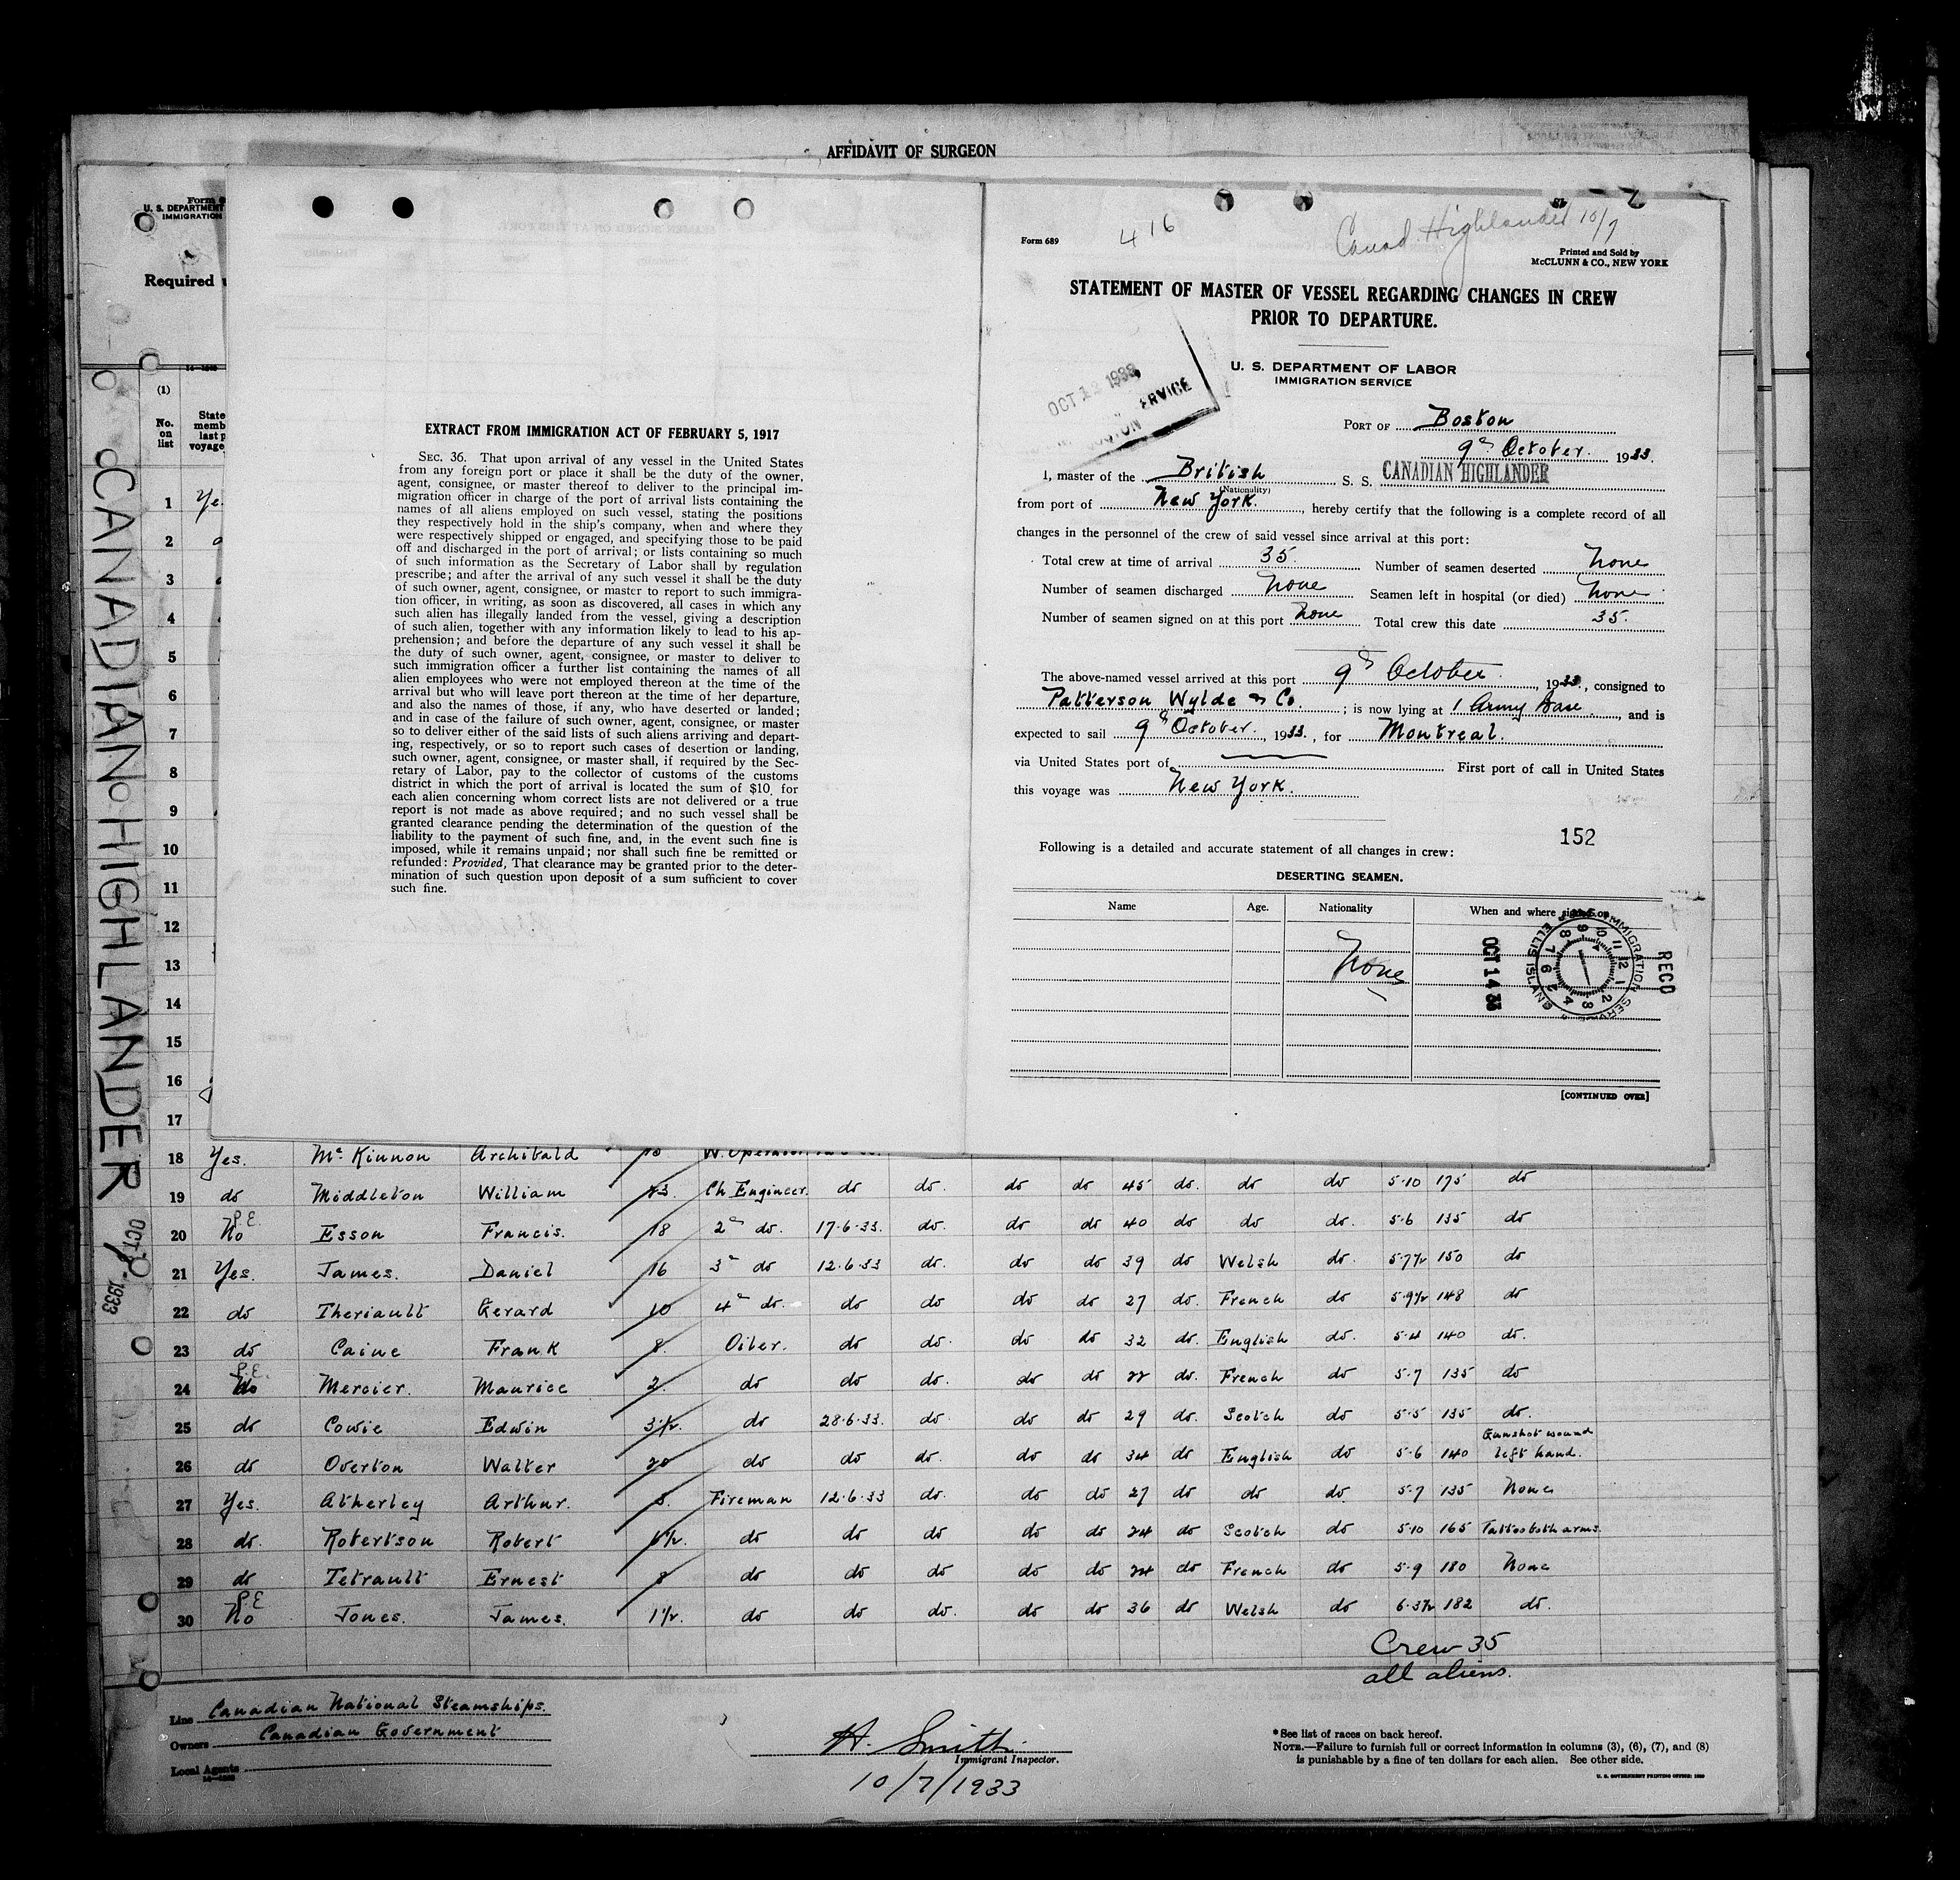 AFFIDAVIT OF SURGEON
U. S. DEPARTMENT
IMMIGRATION
Required
(1)
No. on list
State
memb
last p
voyage
CANADIAN HIGHLANDER
EXTRACT FROM IMMIGRATION ACT OF FEBRUARY 5, 1917
SEC. 36. That upon arrival of any vessel in the United States
from any foreign port or place it shall be the duty of the owner,
agent, consignee, or master thereof to deliver to the principal im-
migration officer in charge of the port of arrival lists containing the
names of all aliens employed on such vessel, stating the positions
they respectively hold in the ship's company, when and where they
were respectively shipped or engaged, and specifying those to be paid
off and discharged in the port of arrival; or lists containing so much
of such information as the Secretary of Labor shall by regulation
prescribe; and after the arrival of any such vessel it shall be the duty
of such owner, agent, consignee, or master to report to such immigra-
tion officer, in writing, as soon as discovered, all cases in which any
such alien has illegally landed from the vessel, giving a description
of such alien, together with any information likely to lead to his ap-
prehension; and before the departure of any such vessel it shall be
the duty of such owner, agent, consignee, or master to deliver to
such immigration officer a further list containing the names of all
alien employees who were not employed thereon at the time of the
arrival but who will leave port thereon at the time of her departure,
and also the names of those, if any, who have deserted or landed;
and in case of the failure of such owner, agent, consignee, or master
so to deliver either of the said lists of such aliens arriving and depart-
ing, respectively, or so to report such cases of desertion or landing,
such owner, agent, consignee, or master shall, if required by the Sec-
retary of Labor, pay to the collector of customs of the customs
district in which the port of arrival is located the sum of $10 for
each alien concerning whom correct lists are not delivered or a true
report is not made as above required; and no such vessel shall be
granted clearance pending the determination of the question of the
liability to the payment of such fine, and, in the event such fine is
imposed, while it remains unpaid; nor shall such fine be remitted or
refunded: Provided, That clearance may be granted prior to the deter-
mination of such question upon deposit of a sum sufficient to cover
such fine.
Form 689
416
Canad. Highlander 10/7
Printed and Sold by
McCLUNN & CO., NEW YORK
STATEMENT OF MASTER OF VESSEL REGARDING CHANGES IN CREW
PRIOR TO DEPARTURE.
U. S. DEPARTMENT OF LABOR
IMMIGRATION SERVICE
OCT 12 1933
ERVICE
PORT OF Boston
9th October. 1933.
I, master of the British S. S. CANADIAN HIGHLANDER
(Nationality)
from port of New York., hereby certify that the following is a complete record of all
changes in the personnel of the crew of said vessel since arrival at this port:
Total crew at time of arrival 35. Number of seamen deserted None
Number of seamen discharged None Seamen left in hospital (or died) None
Number of seamen signed on at this port None Total crew this date 35.
The above-named vessel arrived at this port 9th October., 1933., consigned to
Patterson Wylde & Co.; is now lying at 1 Army Base, and is
expected to sail 9th October., 1933., for Montreal.
via United States port of First port of call in United States
this voyage was New York.
152
Following is a detailed and accurate statement of all changes in crew:
DESERTING SEAMEN.
Name Age. Nationality When and where signed on
None
RECD
OCT 14 33
IMMIGRATION SERVICE ELLIS ISLAND
[CONTINUED OVER]
1 Ye
2
3
4
5
6
7
8
9
10
11
12
13
14
15
16
17
18 Yes. McKinnon Archibald 10 W. Operator
19 do Middleton William 23 Ch Engineer. do do. do do 45 do. do do 5-10 175 do
20 P.E. No Esson Francis. 18 2nd do. 17-6-33. do. do do 40 do do do. 5-6 135 do
21 Yes. James. Daniel 16 3rd do 12-6-33 do. do do 39 do Welsh do. 5-7½ 150 do
22 do Theriault Gerard 10 4th do. do do do do 27 do. French do 5-9½ 148 do
23 do Caine Frank 8. Oiler. do do. do do 32 do. English do. 5-4 140 do.
24 P.E. No Mercier. Maurice 2. do do do. do do 22 do. French do 5-7 135 do
25 do Cowie Edwin 3½. do 28-6-33. do. do do 29 do. Scotch do 5-5 135 do.
26 do Overton Walter 20 do do do. do do 34 do English do 5-6 140 Gunshot wound left hand.
27 Yes. Atherley Arthur. 5. Fireman 12-6-33 do. do do 27 do do do. 5-7 135 None
28 do. Robertson Robert 6½. do do do do do 24 do Scotch do 5-10 165 Tattoo both arms.
29 do Tetrault Ernest 8 do do do do do 24 do French do 5-9 180 None
30 P.E. No Jones. James. 1½. do do do. do do 36 do Welsh do 6-3½ 182 do.
OCT 1933
Crew 35
all aliens.
Line Canadian National Steamships.
Owners Canadian Government
Local Agents
H. Smith
Immigrant Inspector.
10/7/1933
*See list of races on back hereof.
NOTE.—Failure to furnish full or correct information in columns (3), (6), (7), and (8)
is punishable by a fine of ten dollars for each alien. See other side.
U. S. GOVERNMENT PRINTING OFFICE: 1930